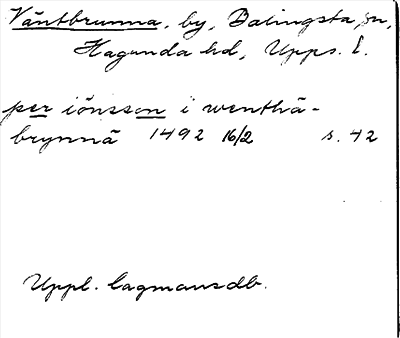 Väntbrunna, by, Dalingsta sn,
Hagunda hd, Upps. l.
per iönsson i wenthä-
brynnä 1492 16/2 s. 42
Uppl. lagmansdb.